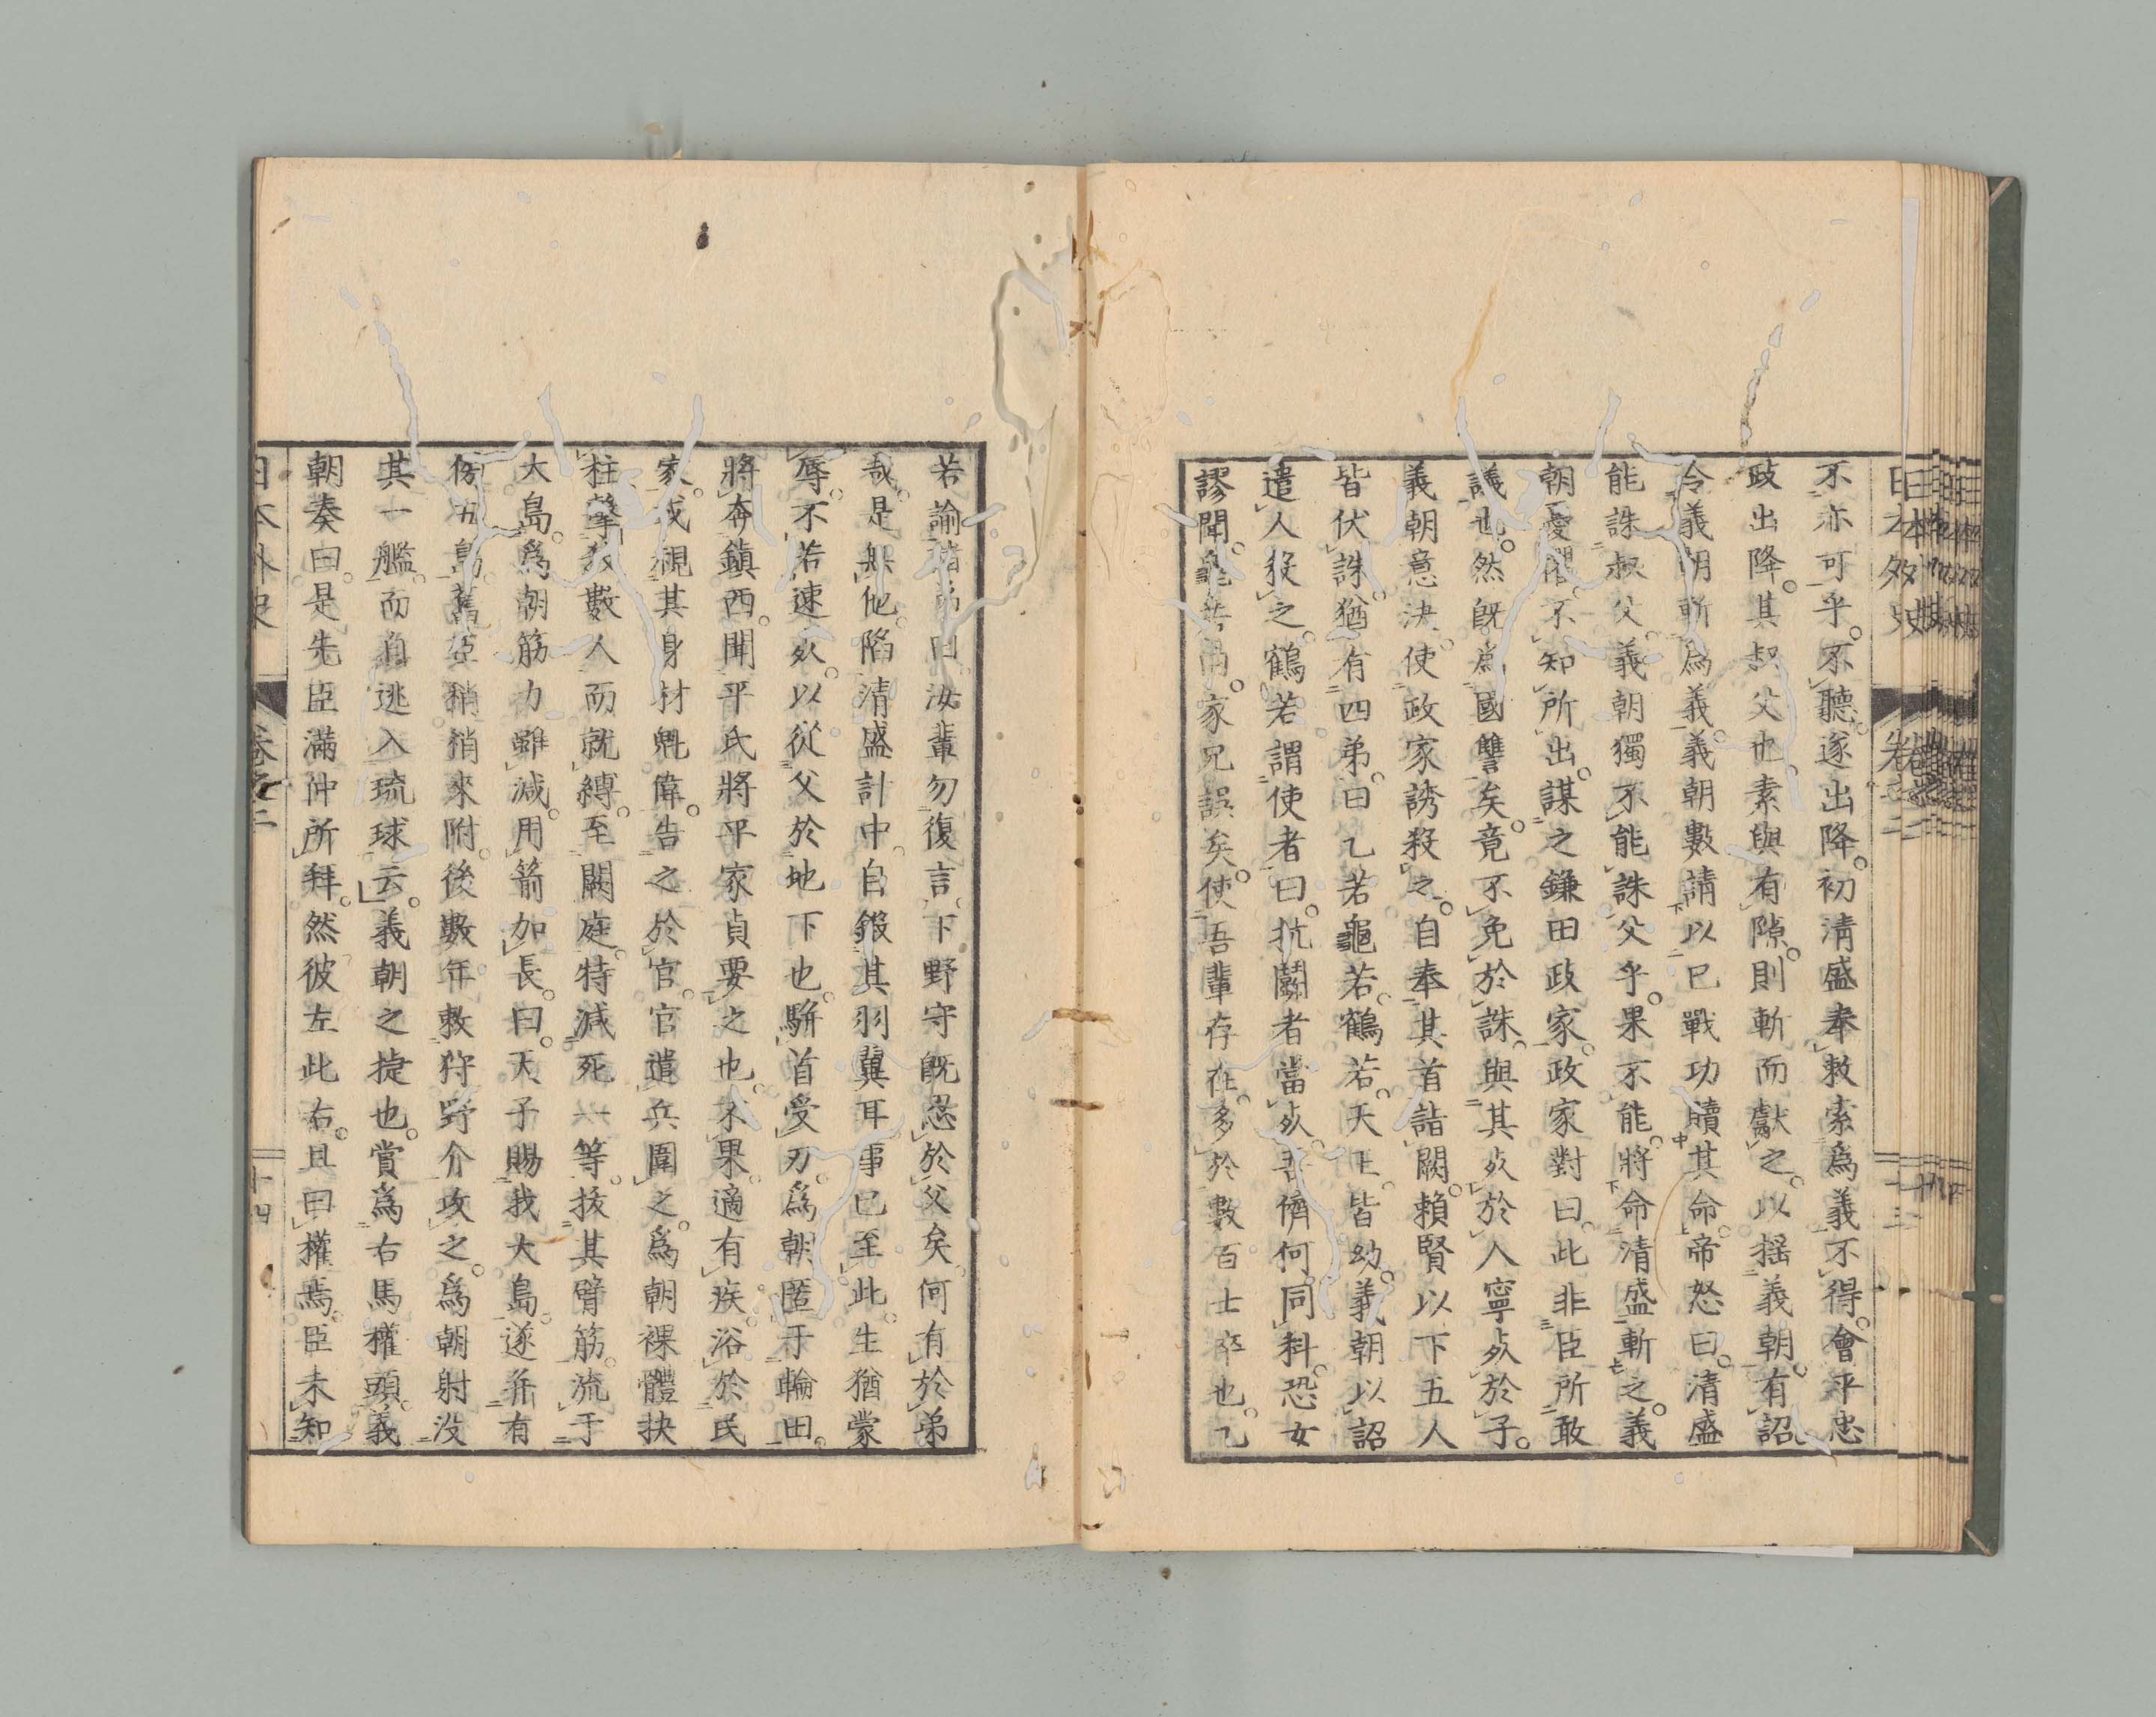 日本外史 卷之二
不亦可乎。不聽。遂出降。初清盛奉敕索爲義不得。會平忠
政出降。其叔父也。素與有隙。則斬而獻之。以搖義朝。有詔
令義朝斬爲義。義朝數請以已戰功贖其命。帝怒曰。清盛
能誅叔父。義朝獨不能誅父乎。果不能。將命清盛斬之。義
朝憂懼。不知所出。謀之鎌田政家。政家對曰。此非臣所敢
議也。然既爲國讐矣。竟不免於誅。與其死於人寧死於子。
義朝意決。使政家誘殺之。自奉其首詣闕。賴賢以下五人
皆伏誅。猶有四弟。曰乙若龜若。鶴若。天王。皆幼。義朝以詔
遣人殺之。鶴若謂使者曰。抗鬭者當死。吾儕何同科。恐女
謬聞。龜若曰。家兄誤矣。使吾輩存在。多於數百士卒也。乙
若諭諸弟曰。汝輩勿復言。下野守既忍於父矣。何有於弟
哉。是無他。陷清盛計中。自鎩其羽翼耳。事已至此。生猶蒙
辱。不若速死。以從父於地下也。駢首受刃。爲朝匿于輪田。
將奔鎮西。聞平氏將平家貞要之也。不果。適有疾。浴於民
家。或覘其身材魁偉。告之於官。官遣兵圍之。爲朝裸體抉
柱。擊殺數人而就縛。至闕庭。特減死一等。拔其臂筋。流于
大島。爲朝筋力雖減。用箭加長。曰。天子賜我大島。遂幷有
傍五島。舊臣稍稍來附。後數年。敕狩野介攻之。爲朝射沒
其一艦。而自逃入琉球云。義朝之捷也。賞爲右馬權頭。義
朝奏曰。是先臣滿仲所拜。然彼左此右。且曰權焉。臣未知
日本外史 卷之二 十四